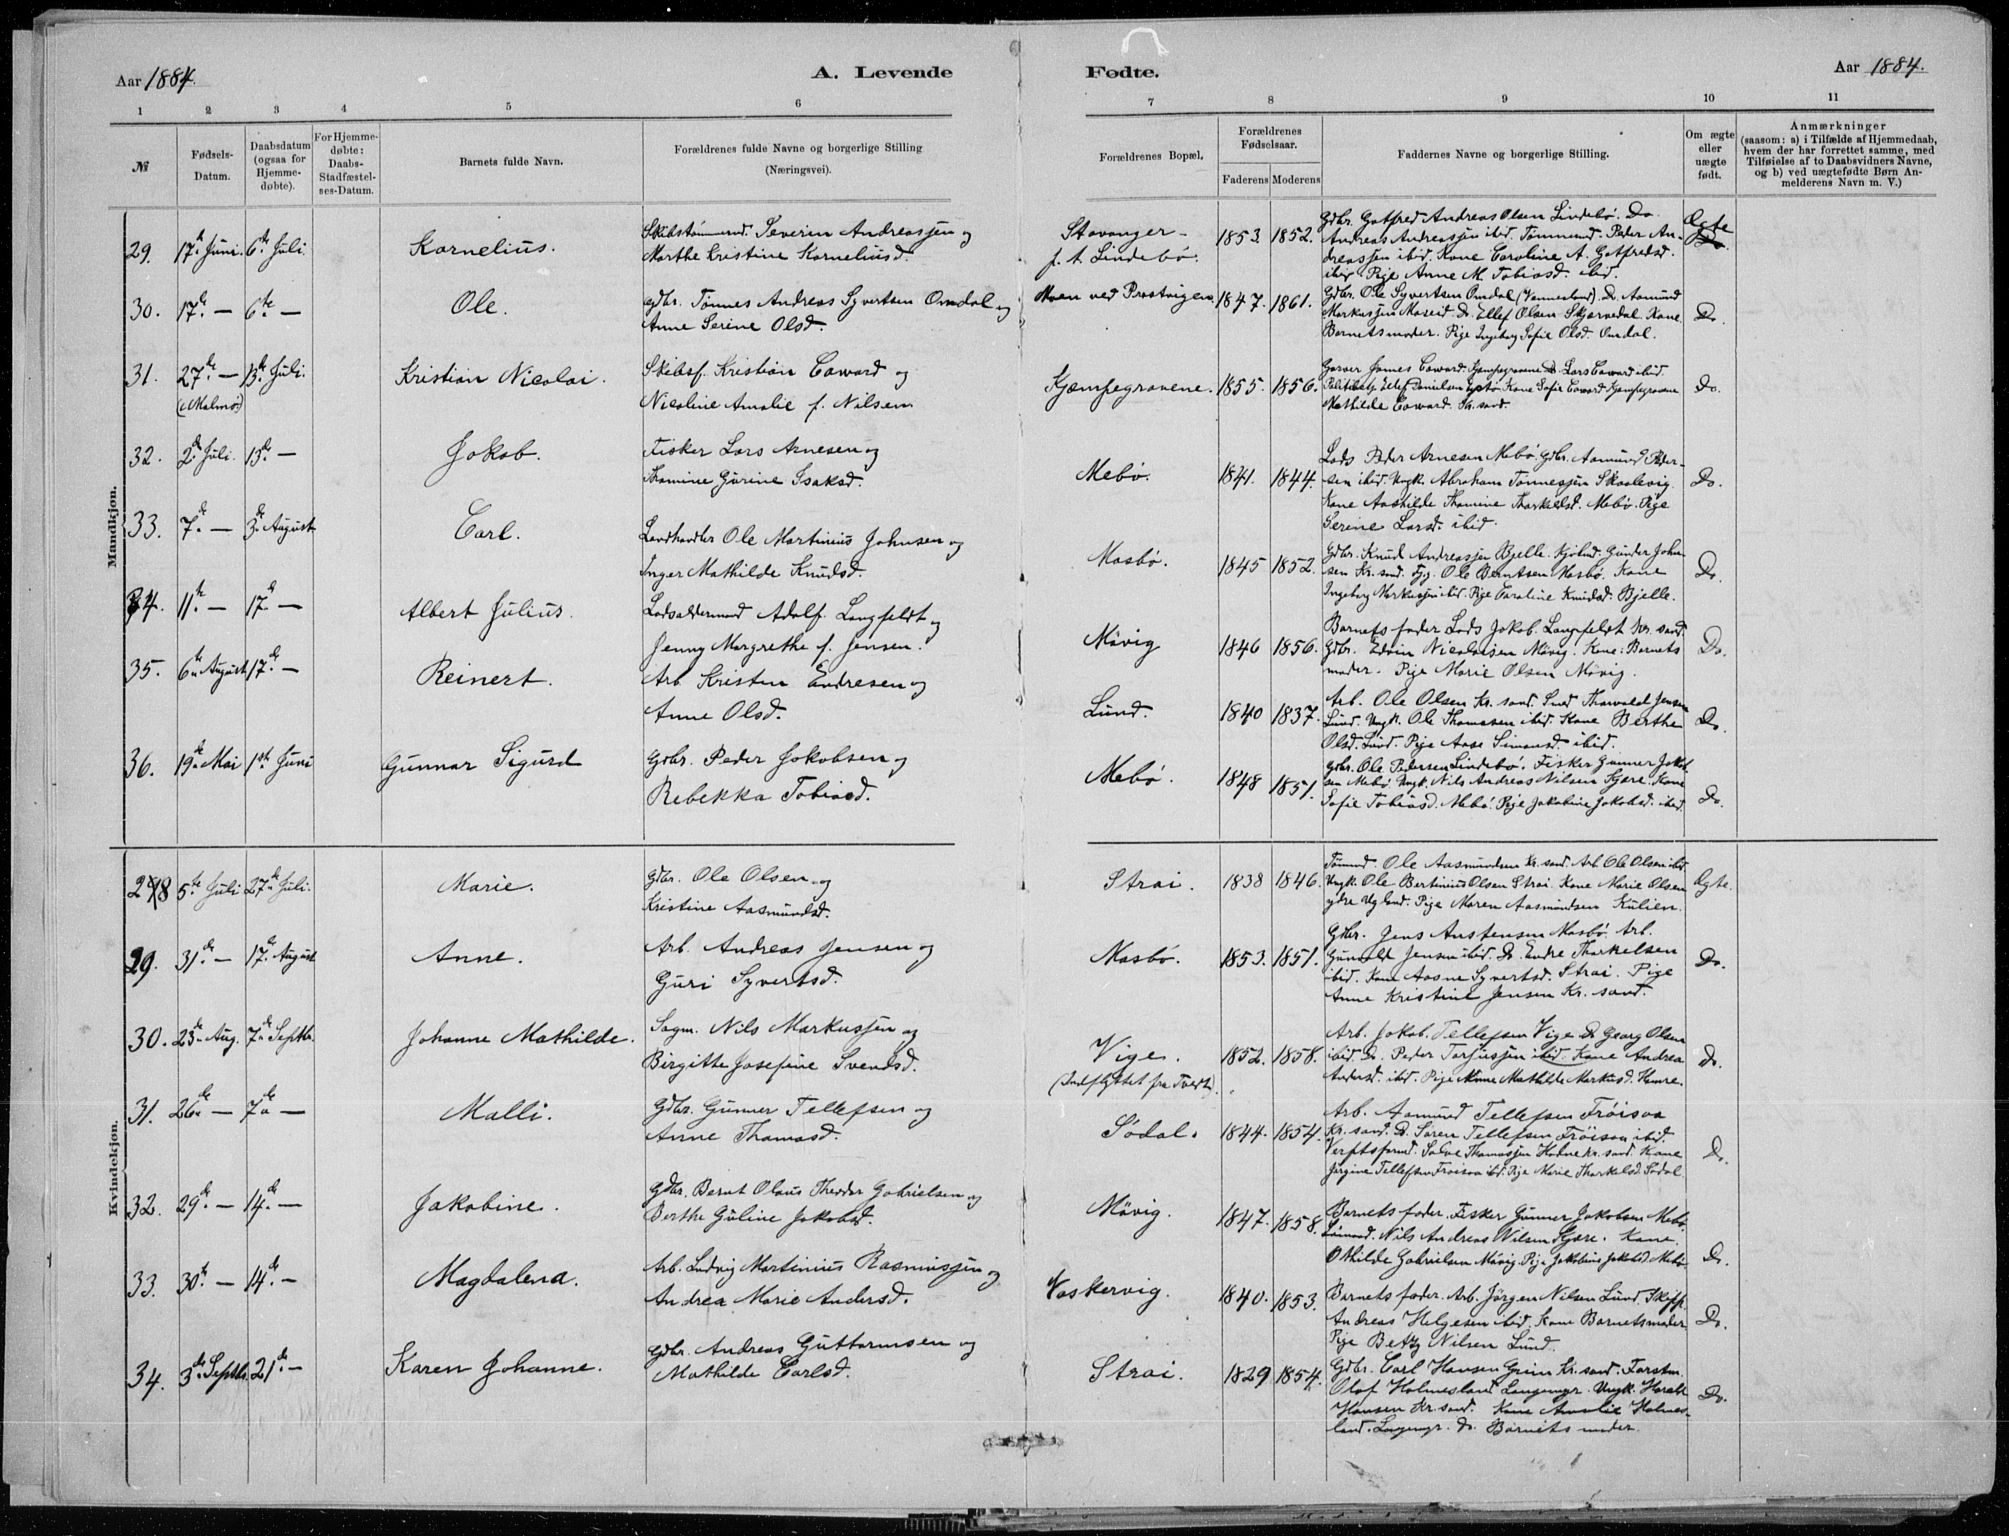 Aar 1884.
A. Levende
1 2 3 4 5 6
№
Fødsels-
Datum.
Daabsdatum
(ogsaa for
Hjemme-
døbte).
For Hjemme-
døbte:
Daabs-
Stadfæstel-
ses-Datum.
Barnets fulde Navn.
Forældrenes fulde Navne og borgerlige Stilling
(Næringsvei).
Mandkjøn.
29. 17de Juni. 6te Juli. Kornelius. Skibstømmermd. Severin Andreassen og
Marthe Kristine Korneliusd.
30. 17de — 6te — Ole. Gdbr. Tønnes Andreas Syvertsen Omdal og
Anne Serine Olsd.
31. 27de — 13de Juli. Kristian Nicolai. Skibsf. Kristian Coward og
(i Malmø) Nicoline Amalie f. Nilsen
32. 2den Juli. 13de — Jakob. Fisker Lars Arnesen og
Thomine Gurine Isaksd.
33. 7de — 3de August Carl. Landhandler Ole Martinius Johnsen og
Inger Mathilde Knudsd.
34. 11te — 17de — Albert Julius. Lodsoldermand Adolf Langfeldt og
Jenny Margrethe f. Jensen.
35. 6te August 17de — Reinert. Arb. Kristen Endresen og
Anne Olsd.
36. 19de Mai 1ste Juni Gunnar Sigurd Gdbr. Peder Jakobsen og
Rebekka Tobiasd.
Kvindekjøn.
28 5te Juli 27de Juli. Marie. Gdbr. Ole Olsen og
Kristine Aasmundsd.
29. 31te — 17de August Anne. Arb. Andreas Jensen og
Guri Syvertsd.
30. 23de Aug. 7de Septbr. Johanne Mathilde. Sagm. Nils Markussen og
Birgitte Josefine Svendsd.
31. 26de — 7de — Malli. Gdbr. Gunner Tellefsen og
Anne Thomasd.
32. 29de — 14de — Jakobine. Gdbr. Bernt Olaus Theodor Gabrielsen og
Berthe Guline Jakobsd.
33. 30te — 14de — Magdalena. Arb. Ludvig Martinius Rasmussen og
Andrea Marie Andersd.
34. 3de Septbr. 21de — Karen Johanne. Gdbr. Andreas Guttormsen og
Mathilde Carlsd.
Fødte.
Aar 1884.
7 8 9 10 11
Forældrenes Bopæl.
Forældrenes
Fødselsaar.
Faderens Moderens
Faddernes Navne og borgerlige Stilling.
Om ægte
eller
uægte
født.
Anmærkninger
(saasom: a) i Tilfælde af Hjemmedaab,
hvem der har forrettet samme, med
Tilføielse af to Daabsvidners Navne,
og b) ved uægtefødte Børn An-
melderens Navn m. V.)
Stavanger
p. t. Lindebø. 1853. 1852. Ægte
Gdbr. Gotfred Andreas Olsen Lindebø. Do.
Andreas Andreassen ibid. Tømmermd. Peder An-
dreassen ibid. Kone Caroline A. Gotfredsd.
ibid. Pige Anne M. Tobiasd. ibid.
Moen ved Prostvigen. 1847. 1861. Do.
Gdbr. Ole Syvertsen Omdal (Vennesland). Do. Aamund
Markussen Moseid Do. Ellef Olsen Skjærvedal. Kone
Barnets moder. Pige Ingeborg Sofie Olsd. Omdal.
Kjæmpegravene. 1855. 1856. Do.
Garver James Coward. Kjæmpegravene Do. Lars Coward ibid.
Kone Sofie Coward Kjæmpegravene
Mathilde Coward. Kr.sand.
Mebø. 1841. 1844. Do.
Lods Peder Arnesen Mebø. Gdbr. Aamund Peder-
sen ibid. Ungk. Abraham Tønnessen Skaalevig.
Kone Aashilde Thomine Tharkildsd. Mebø. Pige
Serine Larsd. ibid.
Mosbø. 1845 1852. Do.
Gdbr. Knud Andreassen Bjelle. Kjøbmd. Gunder John-
sen Kr.sand. Ole Berntsen Mosbø. Kone
Ingeborg Markussen ibid. Pige Caroline Knudsd. Bjelle.
Møvig 1846 1856. Do.
Barnets fader Lods Jakob Langfeldt Kr.sand.
Gdbr. Edvin Nicolaisen Møvig. Kone: Barnets
moder. Pige Marie Olsen Møvig.
Lund. 1840 1837. Do.
Arb. Ole Olsen Kr.sand. Smed Thorvald Jensen
Lund. Ungk. Ole Thomasen ibid. Kone Berthe
Olsd. Lund. Pige Aase Simonsd. ibid.
Mebø. 1848 1851. Do.
Gdbr. Ole Pedersen Lindebø. Fisker Gunner Jakob-
sen Mebø. Ungk. Nils Andreas Nilsen Kjære. Kone
Sofie Tobiasd. Mebø. Pige Jakobine Jakobsd. ibid.
Strai. 1838 1846. Ægte.
Tømmermd. Ole Aasmundsen Kr.sand. Arb. Ole Olsen ibid.
Ungk. Ole Bertinius Olsen Strai. Kone Marie Olsen
ydre Vigland. Pige Maren Aasmundsen Kulien.
Mosbø. 1853. 1851. Do.
Gdbr. Jens Anstensen Mosbø. Arb.
Gunvald Jensen ibid. Do. Endre Tharkelsen
ibid. Kone Aasne Syvertsd. Strai. Pige
Anne Kristine Jensen Kr.sand.
Vige.
(Indflyttet fra Tveit). 1852. 1858. Do.
Arb. Jakob Tellefsen Vige. Do. Georg Olsen
ibid. Do. Peder Torjussen ibid. Kone Andrea
Andersd. ibid. Pige Anne Mathilde Markusd. Hamre.
Sødal. 1844. 1854. Do.
Arb. Aamund Tellefsen Frøisaa
Kr.sand. Do. Søren Tellefsen Frøisaa ibid.
Verftsformd. Salve Thomassen Holme Kr.sand. Kone
Jørgine Tellefsen Frøisaa ibid. Pige Marie Tharkelsd. Sødal.
Møvig. 1847. 1858. Do.
Barnets fader. Fisker Gunner Jakobsen Mebø.
Nils Andreas Nilsen Kjære. Kone
Othilde Gabrielsen Møvig. Pige Jakobine Jakobsd. Mebø.
Voskervig. 1840. 1853. Do.
Barnets fader. Arb. Jørgen Nilsen Lund. Skipp.
Andreas Helgesen ibid. Kone Barnets moder
Pige Betzy Nilsen Lund.
Strai. 1829 1854. Do.
Gdbr. Carl Hansen Grim Kr.sand. Forstm.
Olaf Holmesland Langemyr. Ungk. Harald
Hansen Kr.sand. Kone Amalie Holmes-
land. Langemyr. Do. Barnets moder.